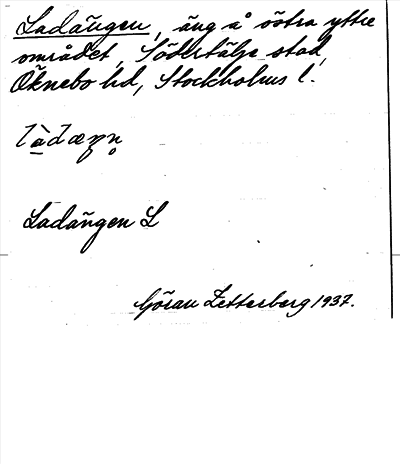 Ladängen, äng å östra yttre
området, Södertälje stad,
Öknebo hd, Stockholms l.
Ladängen L
Göran Zetterberg 1937.